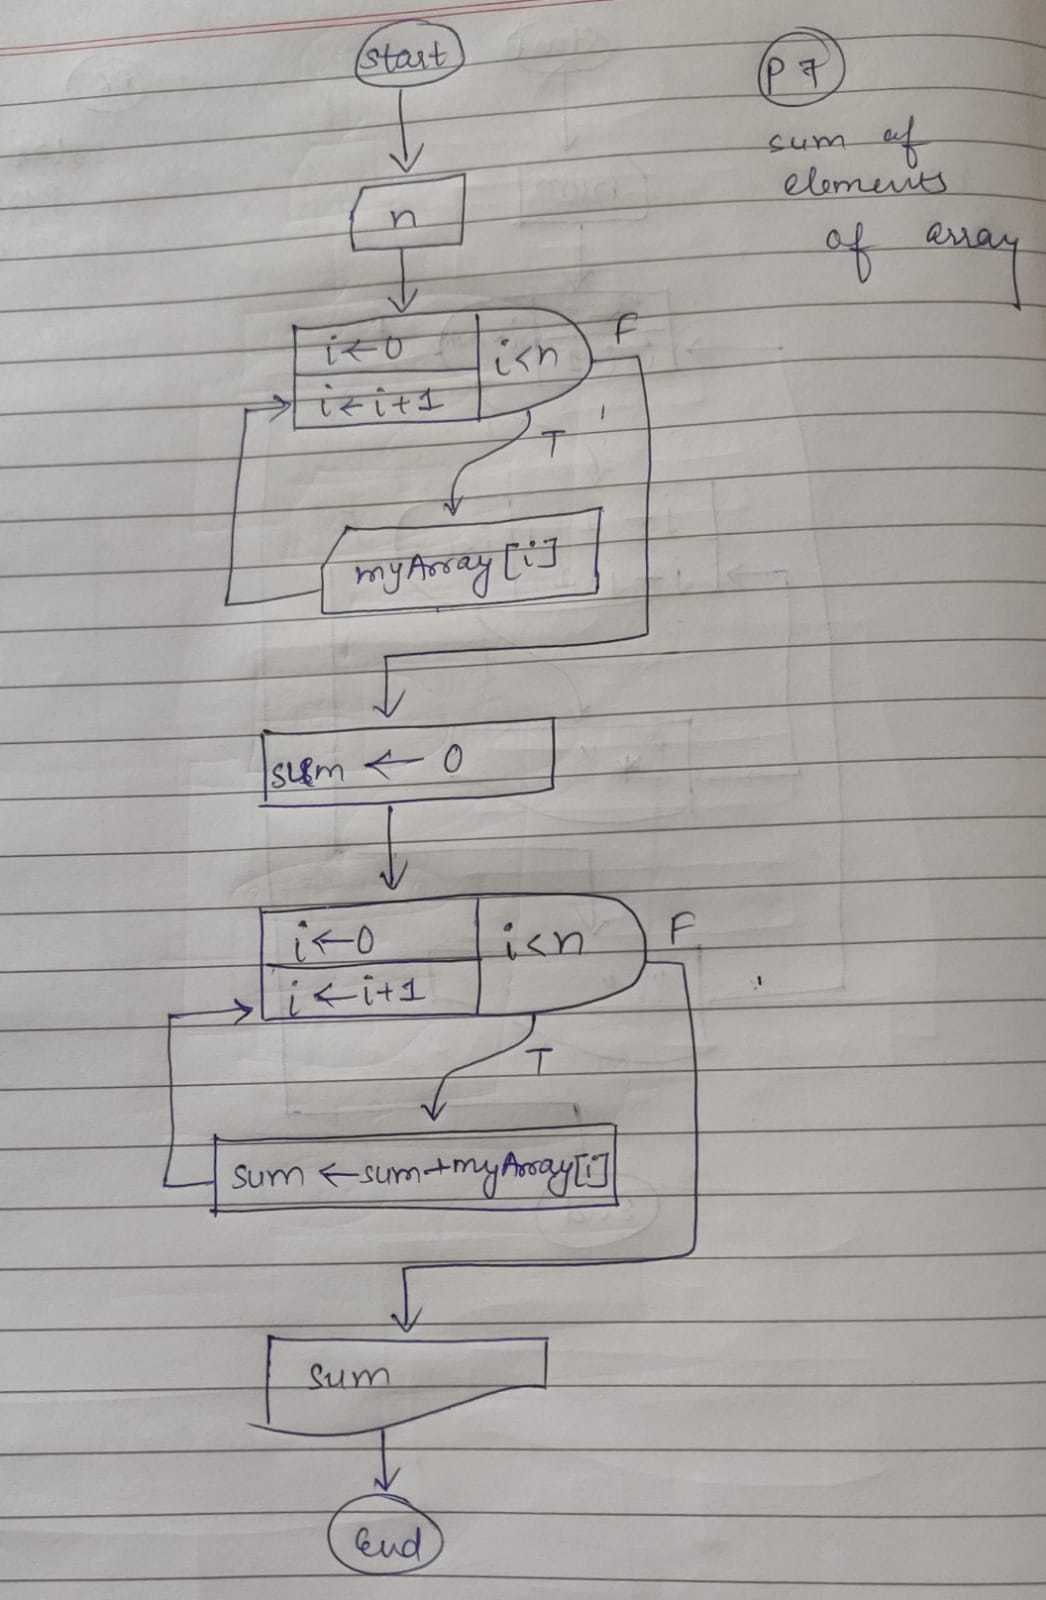 start
P 7
sum of
elements
of array
n
i←0
i<n
F
i←i+1
T
myArray[i]
sum ← 0
i←0
i<n
F
i←i+1
T
sum ←sum+myArray[i]
sum
End